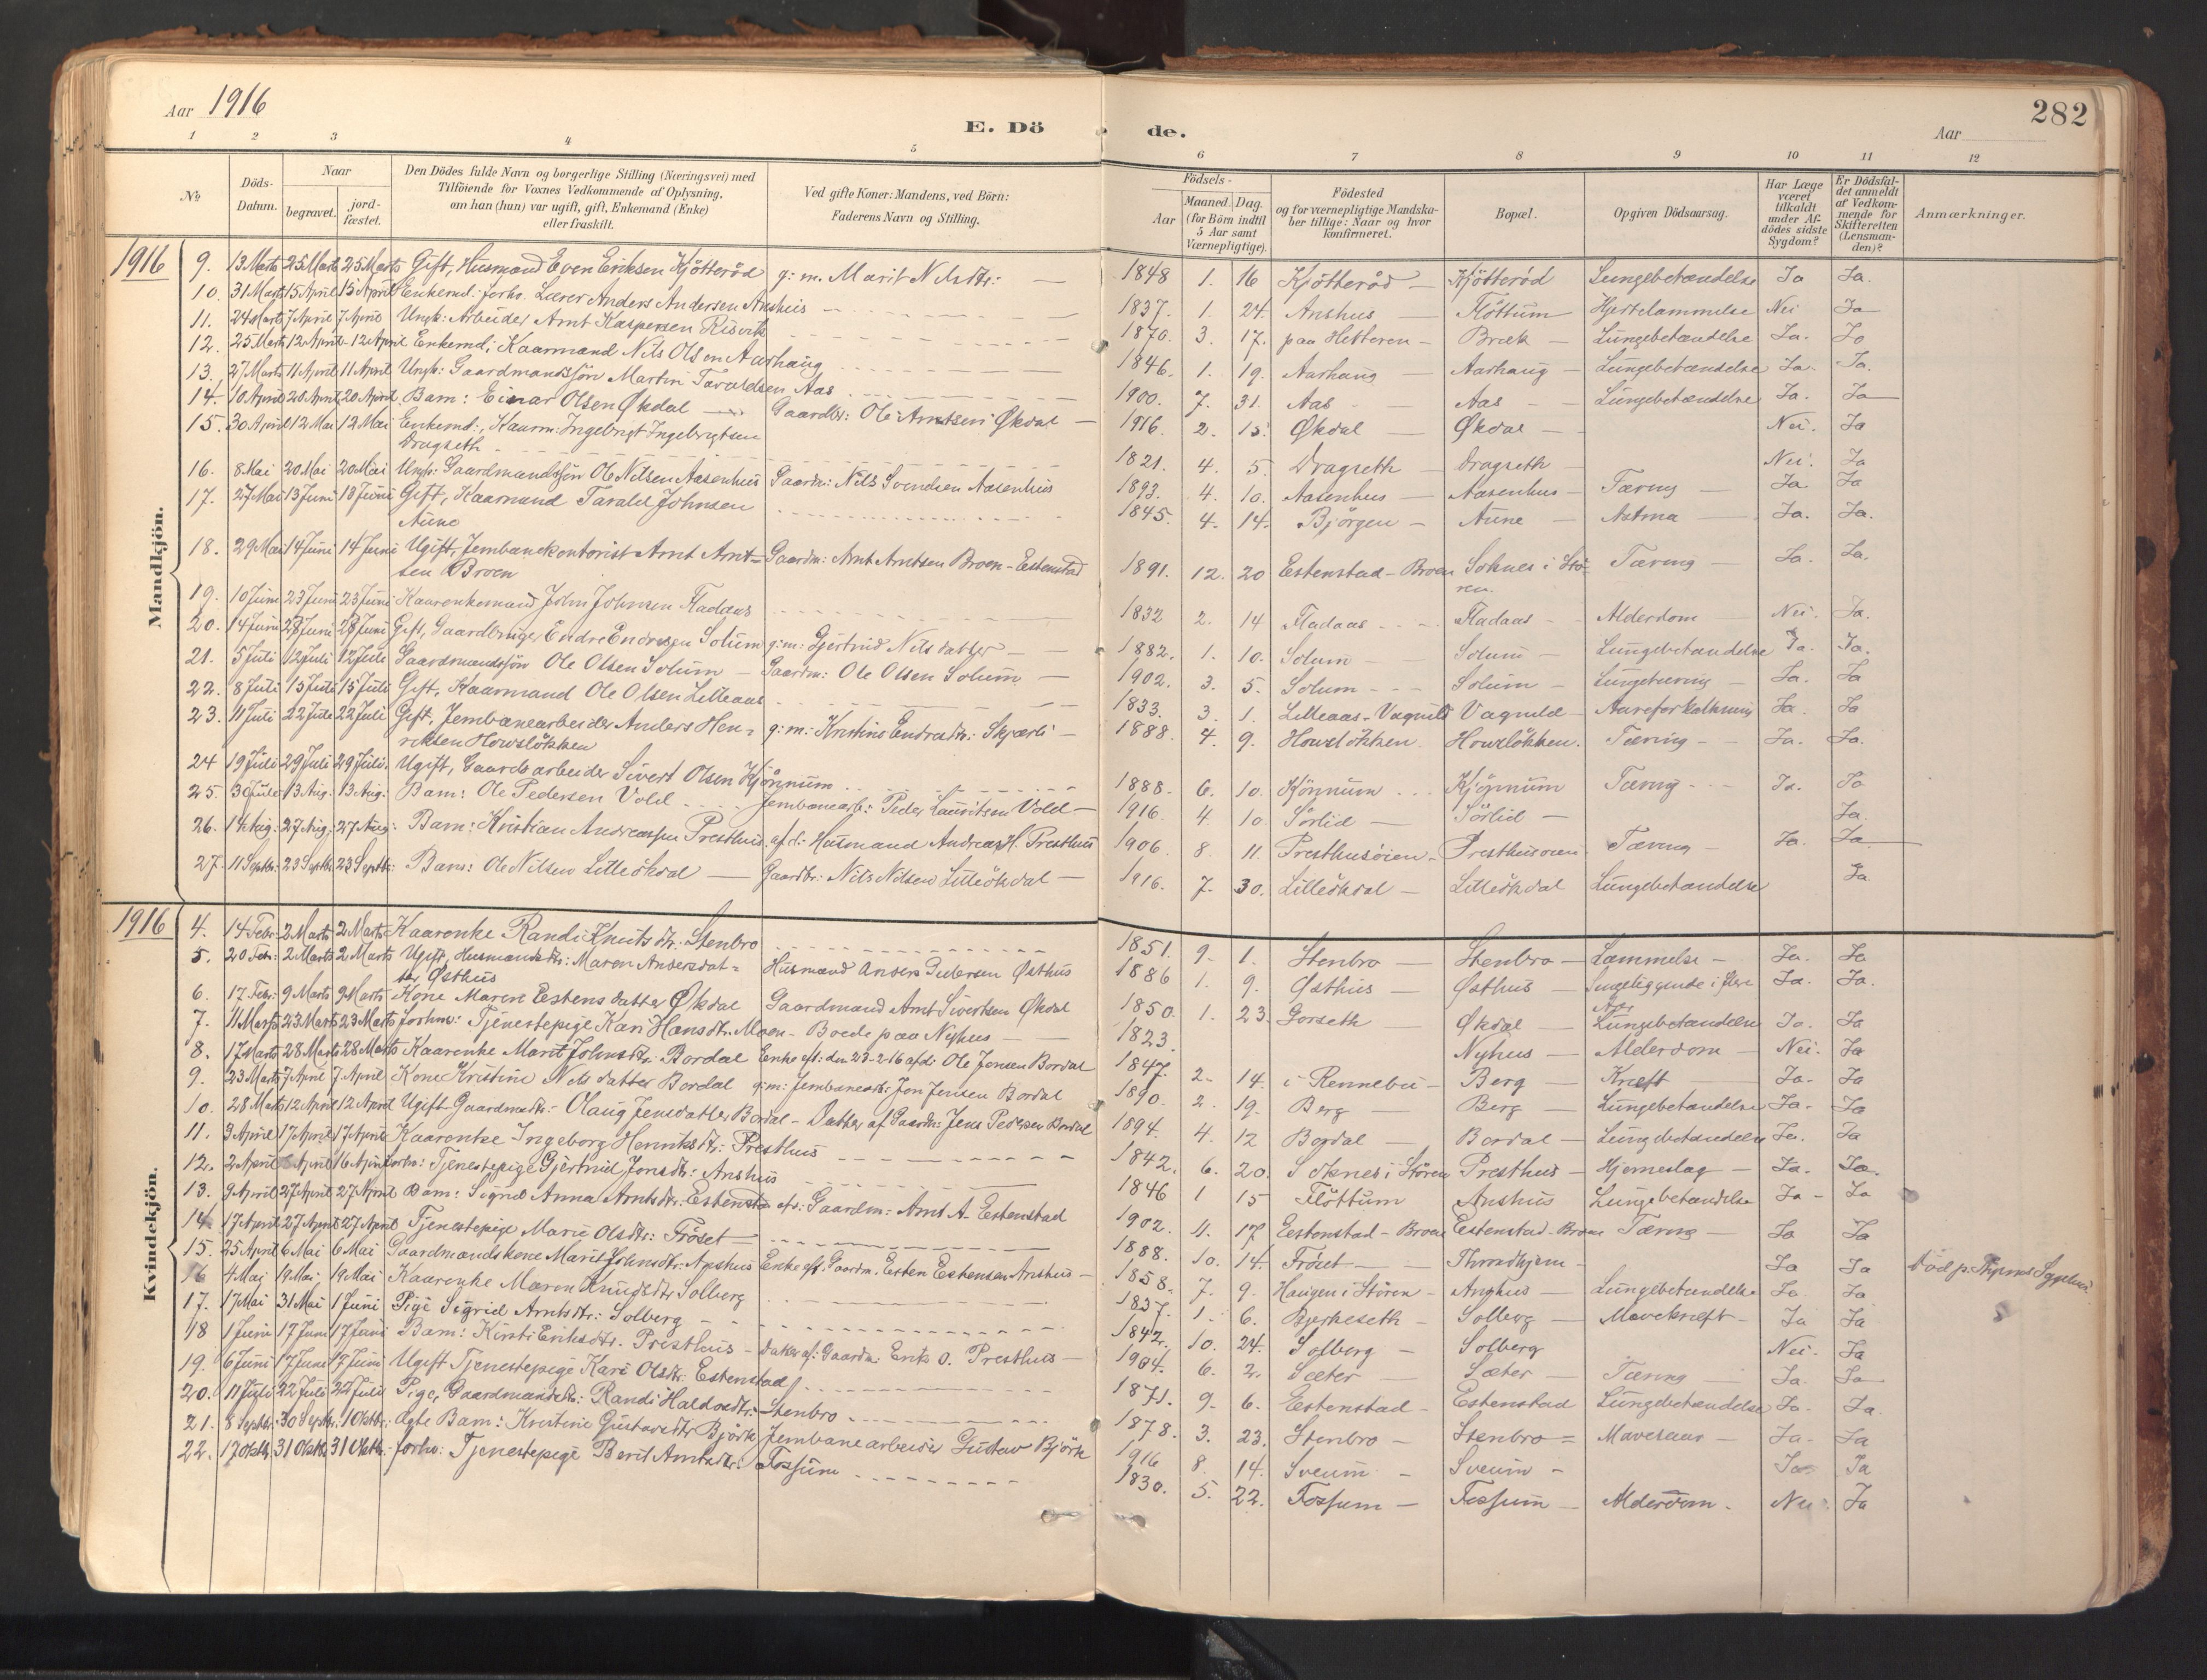 Aar 1916
E. Dö
de.
Aar
282
1 2 3 4 5 6 7 8 9 10 11 12
No
Döds-Datum.
Naar
begravet.
jord-fæstet.
Den Dödes fulde Navn og borgerlige Stilling (Næringsvei) med
Tilföiende for Voxnes Vedkommende af Oplysning,
om han (hun) var ugift, gift, Enkemand (Enke)
eller fraskilt.
Ved gifte Koner: Mandens, ved Börn:
Faderens Navn og Stilling.
Födsels-
Aar
Maaned. Dag.
(for Börn indtil
5 Aar samt
Værnepligtige).
Födested
og for værnepligtige Mandska-
ber tillige: Naar og hvor
konfirmeret.
Bopæl.
Opgiven Dödsaarsag.
Har Læge
været
tilkaldt
under Af-
dödes sidste
Sygdom?
Er Dödsfal-
det anmeldt
af Vedkom-
mende for
Skifteretten
(Lensman-
den)?
Anmærkninger.
Mandkjön.
1916 9. 13 Marts 25 Marts 25 Marts Gift, Husmand Even Eriksen Kjötteröd g: m. Marit Nilsdtr: 1848 1. 16 Kjötteröd Kjötteröd Lungebetændelse Ja Ja.
10. 31 Marts 15 April 15 April Enkemd: forhv. Lærer Anders Andersen Anshus 1837. 1. 24. Anshus Flöttum Hjertelammelse Nei Ja
11. 24 Marts 7 April 7 April Ungk: Arbeider Arnt Kaspersen 1870. 3. 17. paa Hitteren Bræk Lungebetændelse Ja. Ja
12. 25 Marts 12 April 12 April Enkemd: Kaarmand Nils Olsen Aarhaug 1846. 1. 19. Aarhaug Aarhaug Lungebetændelse Ja. Ja.
13. 27 Marts 11 April 11 April Ungk: Gaardmandssön Martin Taraldsen Aas 1900. 7. 31. Aas Aas Lungebetændelse Ja. Ja
14. 10 April 20 April 20 April Barn: Einar Olsen Økdal Gaardbr: Ole Arntsen Økdal 1916. 2. 15. Økdal Økdal Nei. Ja
15. 30 April 12 Mai 12 Mai Enkemd:, Kaarm: Ingebrigt Ingebrigtsen
Dragseth 1821. 4. 5. Dragseth Dragseth Nei. Ja
16. 8 Mai 20 Mai 20 Mai Ungk: Gaardmandssön Ole Nilsen Aasenhus Gaardm: Nils Svendsen Aasenhus 1893. 4. 10. Aasenhus Aasenhus Tæring Ja. Ja
17. 27 Mai 13 Juni 13 Juni Gift, Kaarmand Tarald Johnsen
Aune 1845. 4. 14. Björgen Aune Astma Ja. Ja.
18. 29 Mai 14 Juni 14 Juni Ugift, Jernbanekontorist Arnt Arnt-
sen Broen Gaardm: Arnt Arntsen Broen - Estenstad 1891. 12. 20 Estenstad - Broen Soknes i Stö-
ren. Tæring Ja. Ja.
19. 10 Juni 23 Juni 23 Juni Kaarenkemand John Johnsen Fladaas 1832 2. 14 Fladaas Fladaas Alderdom Nei. Ja.
20. 14 Juni 28 Juni 28 Juni Gift, Gaardbruger Endre Endresen Solum g: m: Gjertrud Nilsdatter 1882. 1. 10. Solum Solum Lungebetændelse Ja. Ja.
21. 5 Juli 12 Juli 12 Juli Gaardmandssön Ole Olsen Solum Gaardm: Ole Olsen Solum 1902. 3. 5. Solum Solum Lungetæring Ja. Ja
22. 8 Juli 15 Juli 15 Juli Gift, Kaarmand Ole Olsen Lilleaas 1833. 3. 1. Lilleaas - Vagnild Vagnild Aareforkalkning Ja. Ja
23. 11 Juli 22 Juli 22 Juli Gift, Jernbanearbeider Anders Hen-
riksen Hovslökken g: m: Kristine Endresdtr: Skjærli 1888. 4. 9. Hovslökken Hovslökken. Tæring Ja. Ja.
24 19 Juli 29 Juli 29 Juli. Ugift, Gaardsarbeider Sivert Olsen Kjönnum 1888. 6. 10. Kjönnum Kjönnum Tæring Ja. Ja
25. 30 Juli 13 Aug: 13 Aug: Barn: Ole Pedersen Vold Jernbanearb: Peder Lauritsen Vold 1916. 4 10. Sörlid Sörlid Ja.
26. 14 Aug: 27 Aug: 27 Aug: Barn: Kristian Andreassen Presthus af d: Husmand Andreas H. Presthus 1906. 8. 11. Presthusöien Presthusöien Tæring Ja. Ja.
27. 11 Septbr: 23 Septbr 23 Septbr: Barn: Ole Nilsen Lilleökdal Gaardbr: Nils Nilsen Lilleökdal 1916. 7. 30. Lilleökdal Lilleökdal Lungebetændelse Ja.
Kvindekjön.
1916 4. 14 Febr: 2 Marts 2 Marts Kaarenke Randi Knutsdtr: Stenbro 1851. 9. 1. Stenbro Stenbro Lammelse Ja. Ja
5. 20 Febr: 2 Marts 2 Marts Ugift, Husmandsdtr: Maren Andersdat-
ter Østhus Husmand Anders Pedersen Østhus 1886 1. 9. Østhus Østhus Sengeliggende i flere
Aar Ja. Ja.
6. 17 Febr: 9 Marts 9 Marts Kone Maren Estensdatter Økdal Gaardmand Arnt Sivertsen Økdal 1850. 1. 23. Gorseth Økdal Lungebetændelse Ja. Ja
7. 11 Marts 23 Marts 23 Marts forhv: Tjenestepige Kari Hansdtr: Moen - Boede paa Nyhus 1823. Nyhus Alderdom Nei. Ja
8. 17 Marts 28 Marts 28 Marts Kaarenke Marit Johnsdtr: Bordal Enke eft: den 23-2-16 afdr Ole Jonsen Bordal 1847. 2. 14. i Rennebu Berg Kræft Ja. Ja
9. 23 Marts 7 April 7 April Kone Kristine Nilsdatter Bordal g: m: Jernbanearb: Jon Jensen Bordal 1890. 2. 19. Berg Berg Lungebetændelse Ja. Ja
10. 28 Marts 12 April 12 April Ugift Gaardmdtr: Olaug Jensdatter Bordal - Datter af Gaardm: Jens Pedersen Bordal 1894. 4. 12 Bordal Bordal Lungebetændelse Ja. Ja
11. 3 April 17 April 17 April Kaarenke Ingeborg Henriksdtr: Presthus 1842. 6. 20. Soknes i Stören Presthus Hjerneslag Ja. Ja.
12. 2 April 16 April 16 April forhv: Tjenestepige Gjertrud Jonsdtr: Anshus 1846 1 15 Flöttum Anshus Lungebetændelse Ja Ja
13. 9 April 27 April 27 April Barn: Sigrid Anna Arntsdtr: Estenstad Gaardm: Arnt A. Estenstad 1902. 11. 17 Estenstad - Broen Estenstad - Broen Tæring Ja Ja
14. 17 April 27 April 27 April Tjenestepige Marie Olsdtr: Fröset 1888. 10. 14. Fröset Throndhjem Ja Ja
15. 25 April 6 Mai 6 Mai Gaardmandskone Marit Johnsdtr: Anshus Enke eft. Gaardm. Esten Estensen Anshus 1858. 7. 9. Haugen i Stören Anshus Lungebetændelse Ja. Ja
16 4 Mai 19 Mai 19 Mai Kaarenke Maren Knudsdtr Solberg 1837. 1. 6. Bjerkeseth Solberg Mavekræft Ja Ja
17. 17 Mai 31 Mai 1 Juni Pige Sigrid Arntsdtr: Solberg 1842. 10. 24. Solberg Solberg Nei. Ja
18 1 Juni 17 Juni 17 Juni Barn: Kirsti Eriksdtr. Presthus Datter af: Gaardm: Erik O. Presthus 1904. 6. 2. Sæter Sæter Tæring Ja. Ja
19. 6 Juni 17 Juni 17 Juni Ugift Tjenestepige Kari Olsdtr: Estenstad 1871. 9. 6. Estenstad Estenstad Lungebetændelse Ja. Ja.
20. 11 Juli 22 Juli 22 Juli Pige, Gaardmandsdtr: Randi Haldosdtr: Stenbro 1878. 3. 23. Stenbro Stenbro Mavesaar Ja. Ja
21. 8 Septbr: 30 Septbr 1 Oktbr: Ægte Barn: Kristine Gustavsdtr Björk Jernbanearbeider Gustav Björk 1916 8. 14. Sveum Sveum Ja Ja
22. 17 Oktbr: 31 Oktbr 31 Oktbr: forhv: Tjenestepige Berit Arntsdtr: Fossum 1830. 5. 22. Fossum Fossum Alderdom. Nei Ja